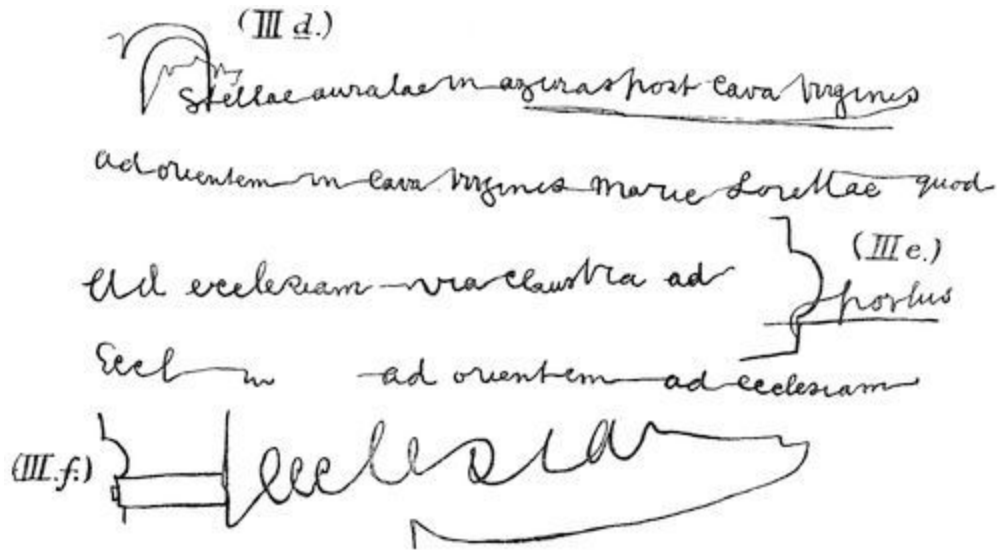 (III d.)
Stellae auratae in azuras post cava Virginis
ad orientem in cava Virginis Marie Lorettae quod
(III e.)
Ad ecclesiam via claustra ad portus
Eccl in ad orientem ad ecclesiam
(III.f.) ecclesiam